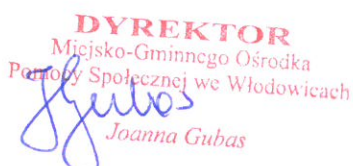 DYREKTOR
Miejsko-Gminnego Ośrodka
Pomocy Społecznej we Włodowicach
JGubas
Joanna Gubas